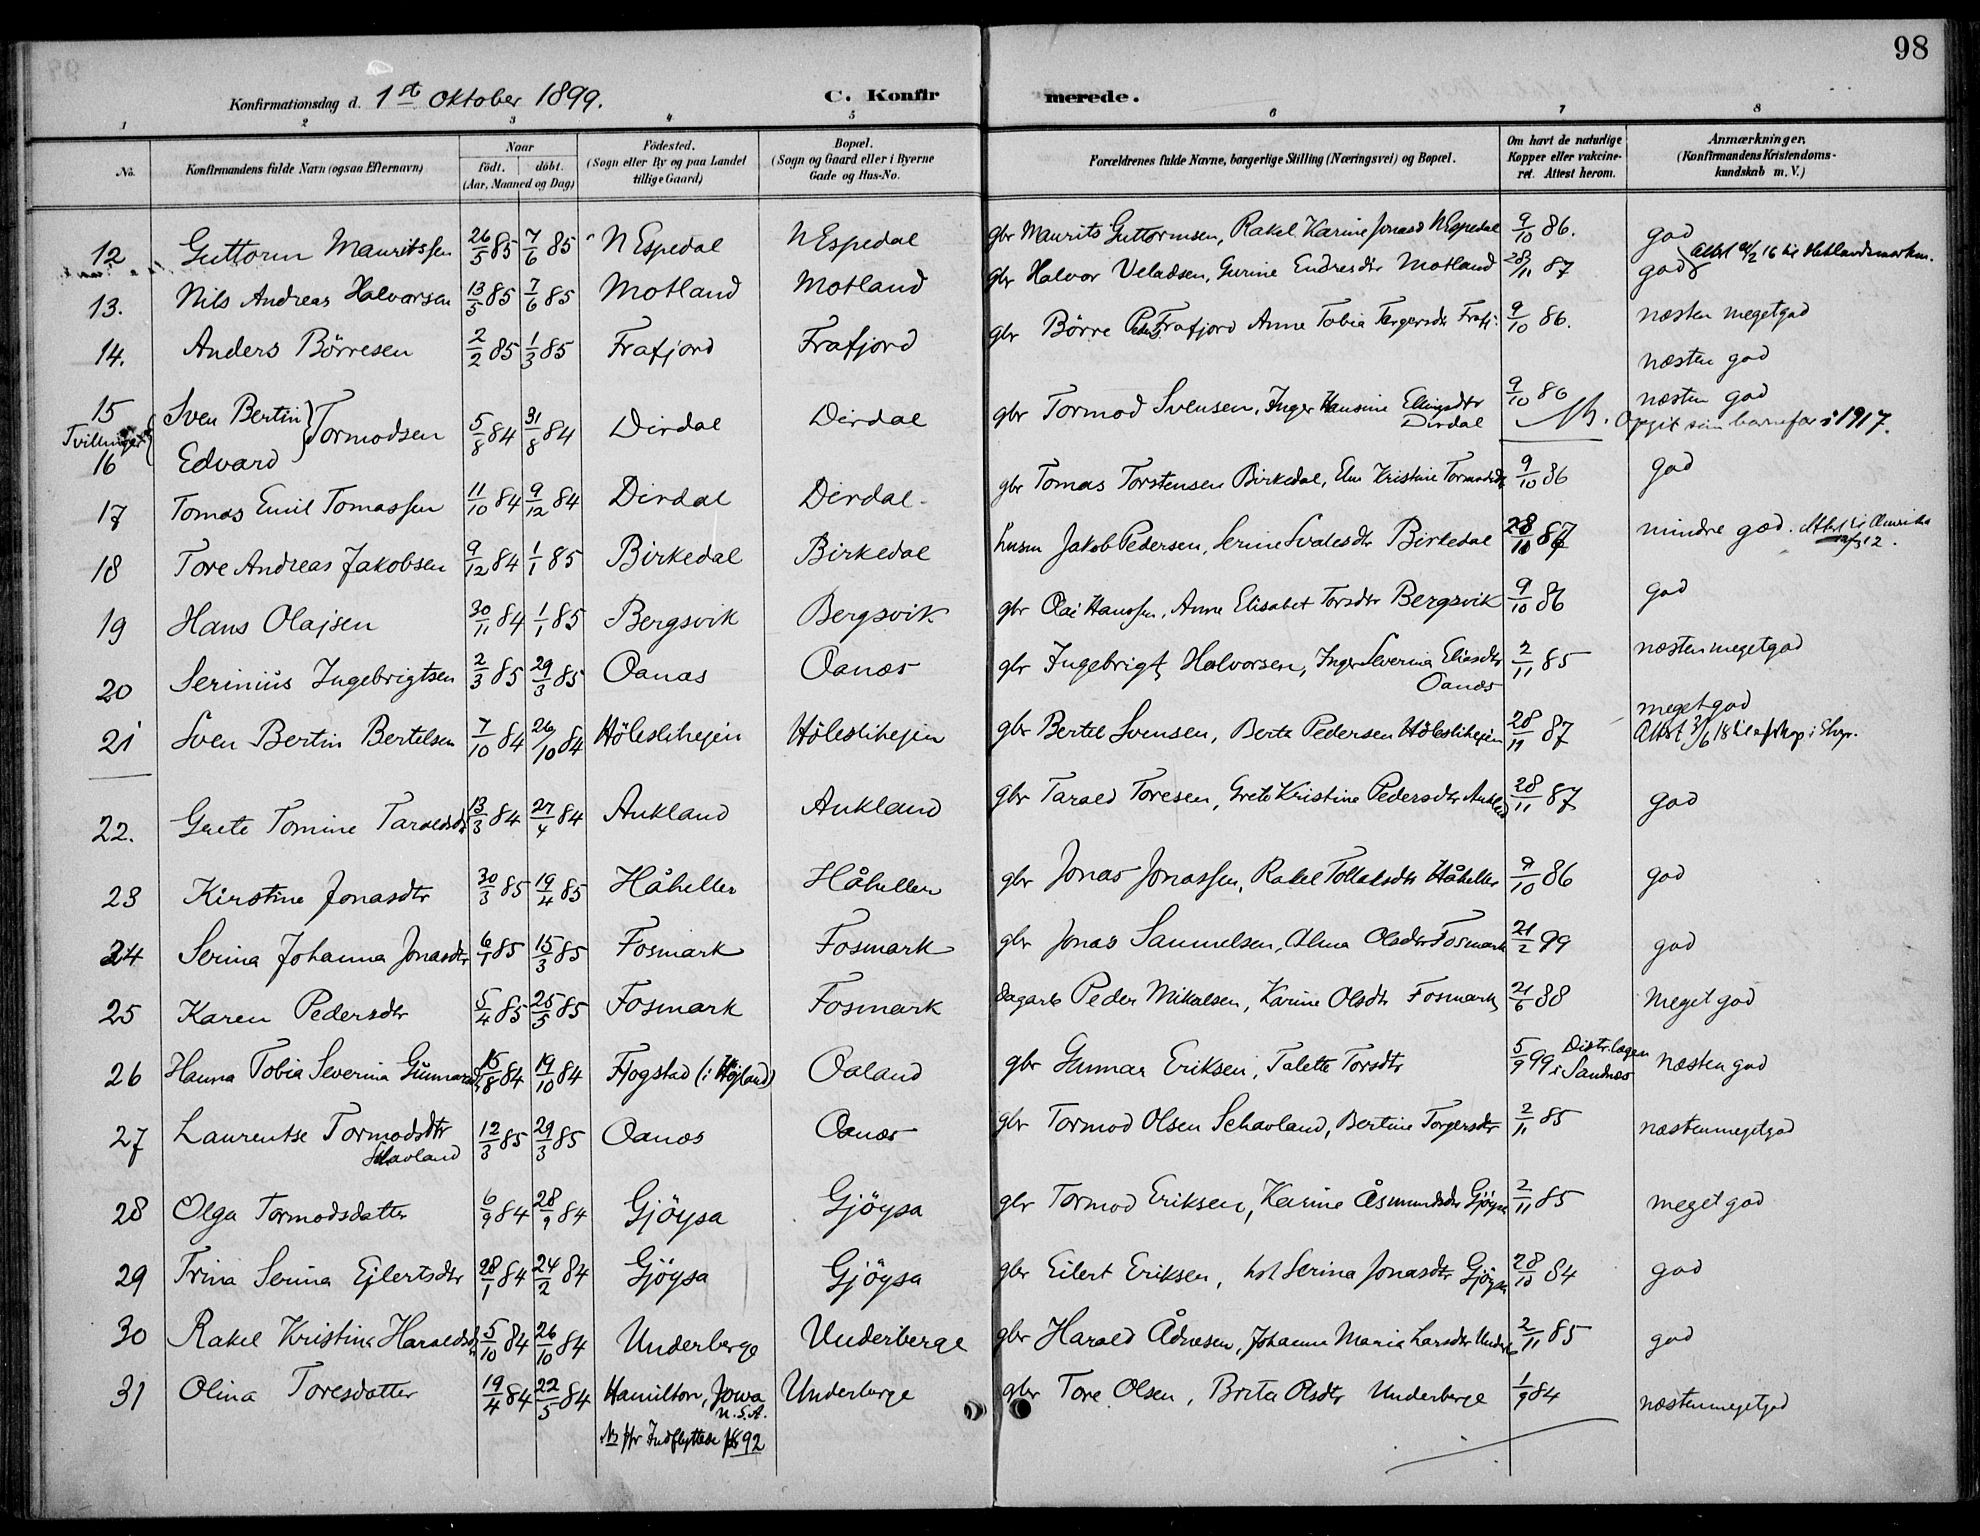 98
Konfirmationsdag d. 1st Oktober 1899. C. Konfirmerede.
1 2 3 4 5 6 7 8
No. Konfirmandens fulde Navn (ogsaa Efternavn) Naar født. døbt. (Aar, Maaned og Dag) Fødested. (Sogn eller By og paa Landet tillige Gaard) Bopæl. (Sogn og Gaard eller i Byerne Gade og Hus-No. Forældrenes fulde Navne, borgerlige Stilling (Næringsvei) og Bopæl. Om havt de naturlige Kopper eller vakcineret. Attest herom. Anmærkninger. (Konfirmandens Kristendomskundskab m. V.)
12 Guttorm Mauritssen 26/5 85 7/6 85 N Espedal N Espedal gbr Maurits Guttormsen, Rakel Karine Jonasd N Espedal 9/10 86. god
13. Nils Andreas Halvorsen 13/5 85 7/6 85 Motland Motland gbr Halvor Veladsen, Gurine Endresdtr Motland 28/11 87 god
14. Anders Börresen 2/2 85 1/3 85 Frafjord Frafjord gbr Börre Peders. Frafjord Anne Tobia Torgersdtr Frafj. 9/10 86. næsten megetgod
næsten god
15 Tvillinger 16 Sven Bertin Edvard } Tormodsen 5/8 84 31/8 84 Dirdal Dirdal gbr Tormod Svensen, Inger Hansine Ellingsdtr Dirdal 9/10 86 næsten god
Opgit som barnefar i 1917.
17 Tomas Emil Tomassen 11/10 84 9/12 84 Dirdal Dirdal gbr Tomas Torstensen Birkedal, Kristine Tormodsdtr 9/10 86 god
18 Tore Andreas Jakobsen 9/12 84 1/1 85 Birkedal Birkedal husm Jakob Pedersen, Serine Svalesdtr Birkedal 28/10 86 mindre god. Attest til Amerika
19 Hans Olajsen 30/11 84 1/1 85 Bergsvik Bergsvik gbr Olai Hanssen, Anne Elisabet Torsdtr Bergsvik 9/10 86 god
20 Serinius Ingebrigtsen 2/3 85 29/3 85 Oanæs Oanæs gbr Ingebrigt Halvorsen, Inger Severina Eliasdtr Oanæs 2/11 85 næsten megetgod
21 Sven Bertin Bertelsen 7/10 84 26/10 84 Höleslihejen Höleslihejen gbr Bertel Svensen, Berte Pedersen Höleslihejen 28/11 87 meget god
22. Grete Tomine Taraldsdtr 13/3 84 27/4 84 Aukland Aukland gbr Tarald Toresen, Grete Kristine Pedersdtr Aukland 28/11 87 god
23 Kirstine Jonasdtr 30/3 85 19/4 85 Håheller Håheller gbr Jonas Jonassen, Rakel Tollaksdtr Håheller 9/10 86 god
24 Serina Johanna Jonasdtr 6/1 85 15/3 85 Fosmark Fosmark gbr Jonas Samuelsen, Alma Olsdtr Fosmark 21/2 99 god
25 Karen Pedersdtr 5/4 85 25/5 85 Fosmark Fosmark dagarb Peder Mikalsen, Karine Olsdtr Fosmark 21/6 88 meget god
26 Hanna Tobia Severina Gunnarsd 15/8 84 19/10 84 Fjogstad (i Højland) Oaland gbr Gunnar Eriksen, Talette Torsdtr 5/9 99 Distr.lægen i Sandnæs næsten god
27 Laurentse Tormodsdtr Skavland 12/3 85 29/3 85 Oanæs Oanæs gbr Tormod Olsen Schavland, Bertine Torgersdtr 2/11 85 næstenmegetgod
28 Olga Tormodsdatter 6/9 84 28/9 84 Gjöysa Gjöysa gbr Tormod Eriksen, Karine Åsmundsdtr Gjöysa 2/11 85 meget god
29 Trina Serina Ejlertsdtr 28/1 84 24/2 84 Gjöysa Gjöysa gbr Eilert Eriksen, hst Serina Jonasdtr Gjöysa 28/10 84 god
30 Rakel Kristina Haraldsdtr 5/10 84 26/10 84 Underberge Underberge gbr Harald Ådnesen, Johanne Maria Larsdtr Underb 2/11 85 god
31 Olina Toresdatter 19/4 84 22/5 84 Hamilton, Jowa U.S.A. Underberge gbr Tore Olsen, Brita Olsdtr Underberge 1/9 84 næstenmegetgod
92